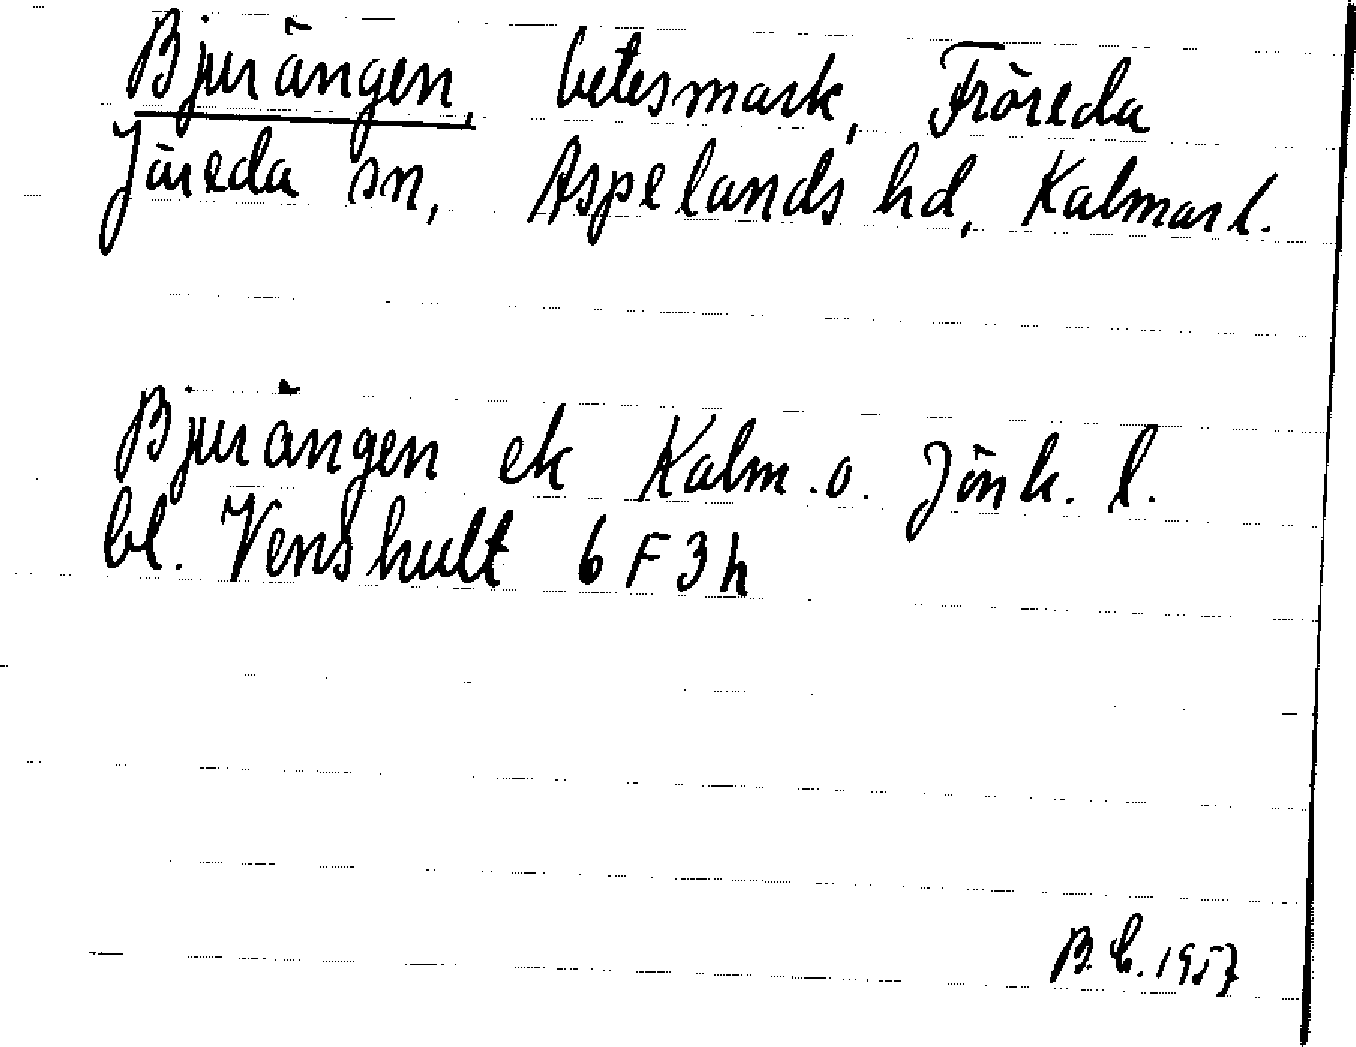 Bjurängen, betesmark, Fröreda
Järeda sn, Aspelands hd, Kalmar l.
Bjurängen ek Kalm. o. Jönk. l.
bl. Venshult 6 F 3 h
B. L. 1957